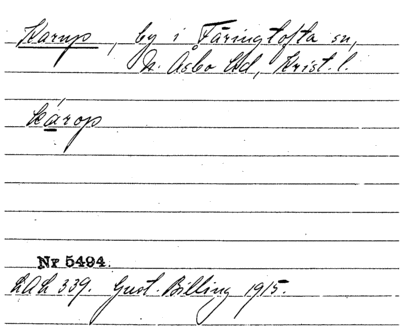 Karup, by i Färingtofta sn,
N. Åsbo hd, Krist. l.
károp
Nr 5494.
LAL 339. Gust. Billing 1915.